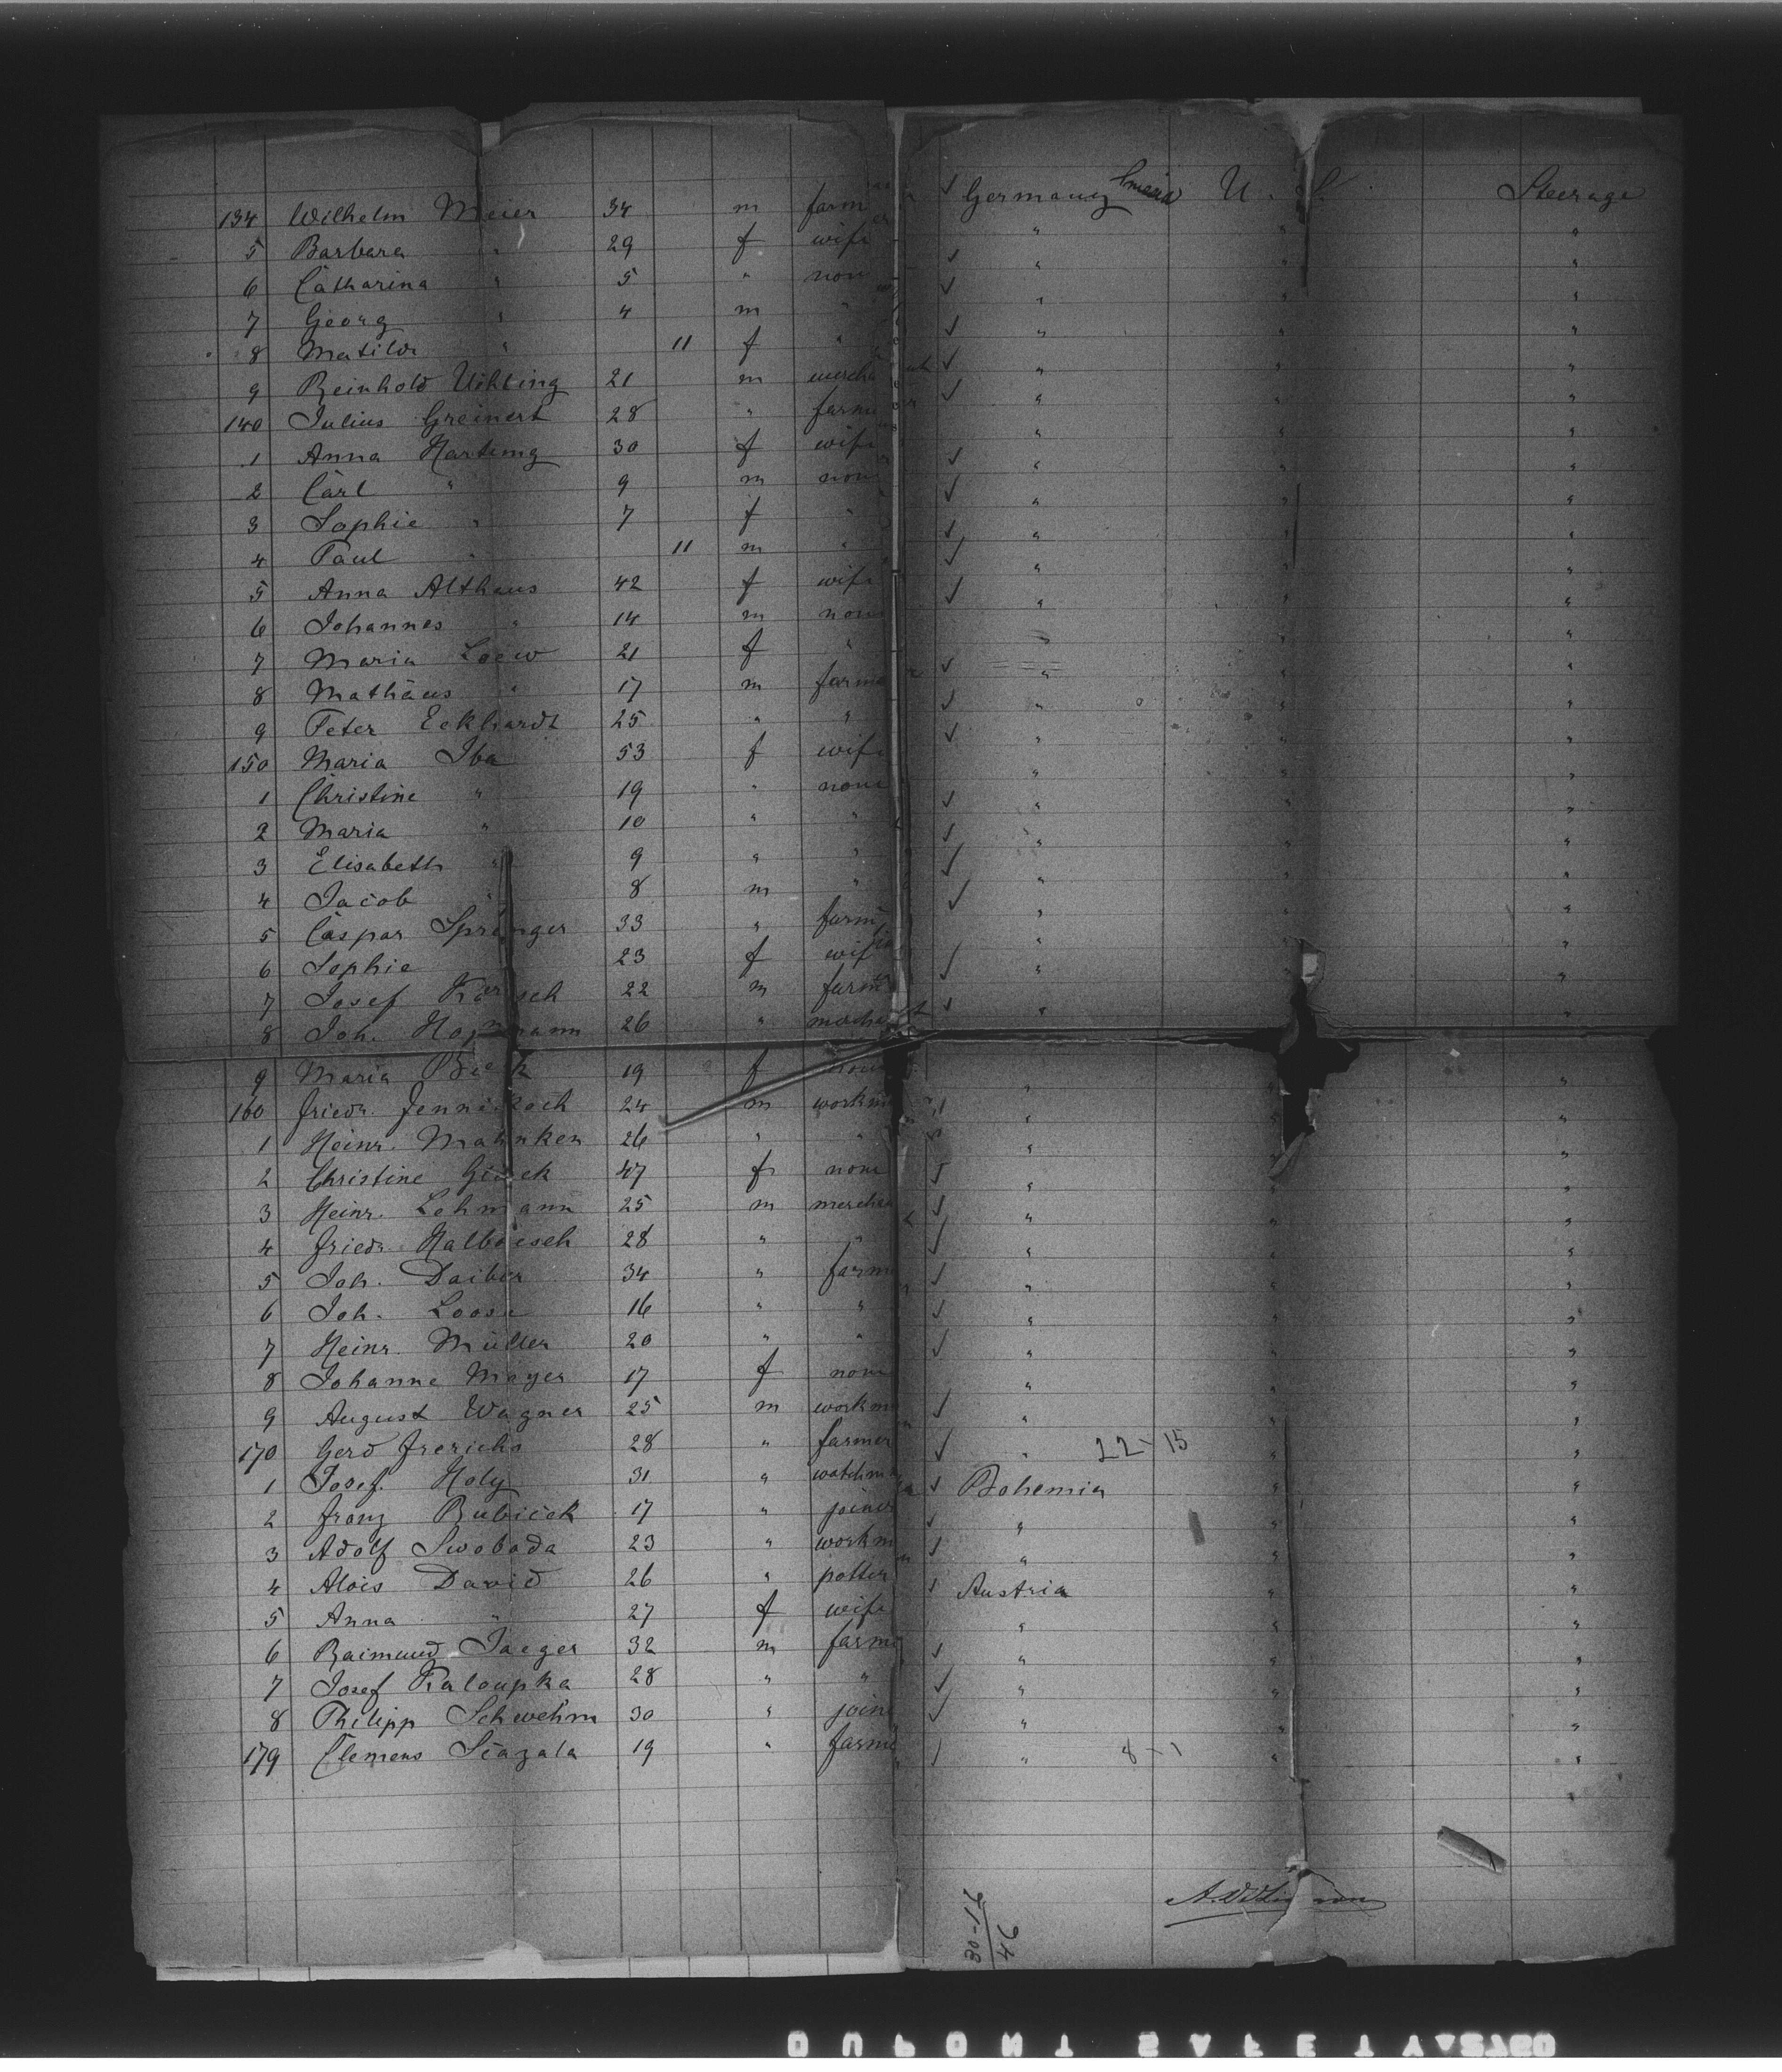 134 Wilhelm Meier 34 m farmer Germany U. S. Steerage
5 Barbara " 29 f wife " " "
6 Catharina " 5 " none " " "
7 Georg " 4 m " " " "
8 Matilde " 11 f " " " "
9 Reinhold Uihling 21 m merchant " " "
140 Julius Greinert 28 " farmer " " "
1 Anna Hartung 30 f wife " " "
2 Carl " 9 m none " " "
3 Sophie " 7 f " " " "
4 Paul " 11 m " " " "
5 Anna Althaus 42 f wife " " "
6 Johannes " 14 m none " " "
7 Maria Loew 21 f " " " "
8 Mathäus " 17 m farmer " " "
9 Peter Eckhardt 25 " " " " "
150 Maria Iba 53 f wife " " "
1 Christine " 19 " none " " "
2 Maria " 10 " " " " "
3 Elisabeth " 9 " " " " "
4 Jacob " 8 m " " " "
5 Caspar Springer 33 " farmer " " "
6 Sophie 23 f wife " " "
7 Josef 22 m farmer " " "
8 Joh. 26 " " " "
9 Maria 19 f none " " "
160 Friedr. 24 m workman " " "
1 Heinr. Mahnken 26 " " " " "
2 Christine 47 f none " " "
3 Heinr. Lehmann 25 m merchant " " "
4 Friedr. 28 " " " " "
5 Joh. Daiber 34 " farmer " " "
6 Joh. Loose 16 " " " " "
7 Heinr. Müller 20 " " " " "
8 Johanne Mayer 17 f none " " "
9 August Wagner 25 m workman " " "
170 Gerd Frerichs 28 " farmer " 22-15 " "
1 Josef Holy 31 " Bohemia " "
2 Franz Rubicek 17 " joiner " " "
3 Adolf Swoboda 23 " workman " " "
4 Alois David 26 " potter Austria " "
5 Anna " 27 f wife " " "
6 Raimund Jaeger 32 m farmer " " "
7 Josef Kaloupka 28 " " " " "
8 Philipp Schwehm 30 " joiner " " "
179 Clemens 19 " farmer " 8-1 " "